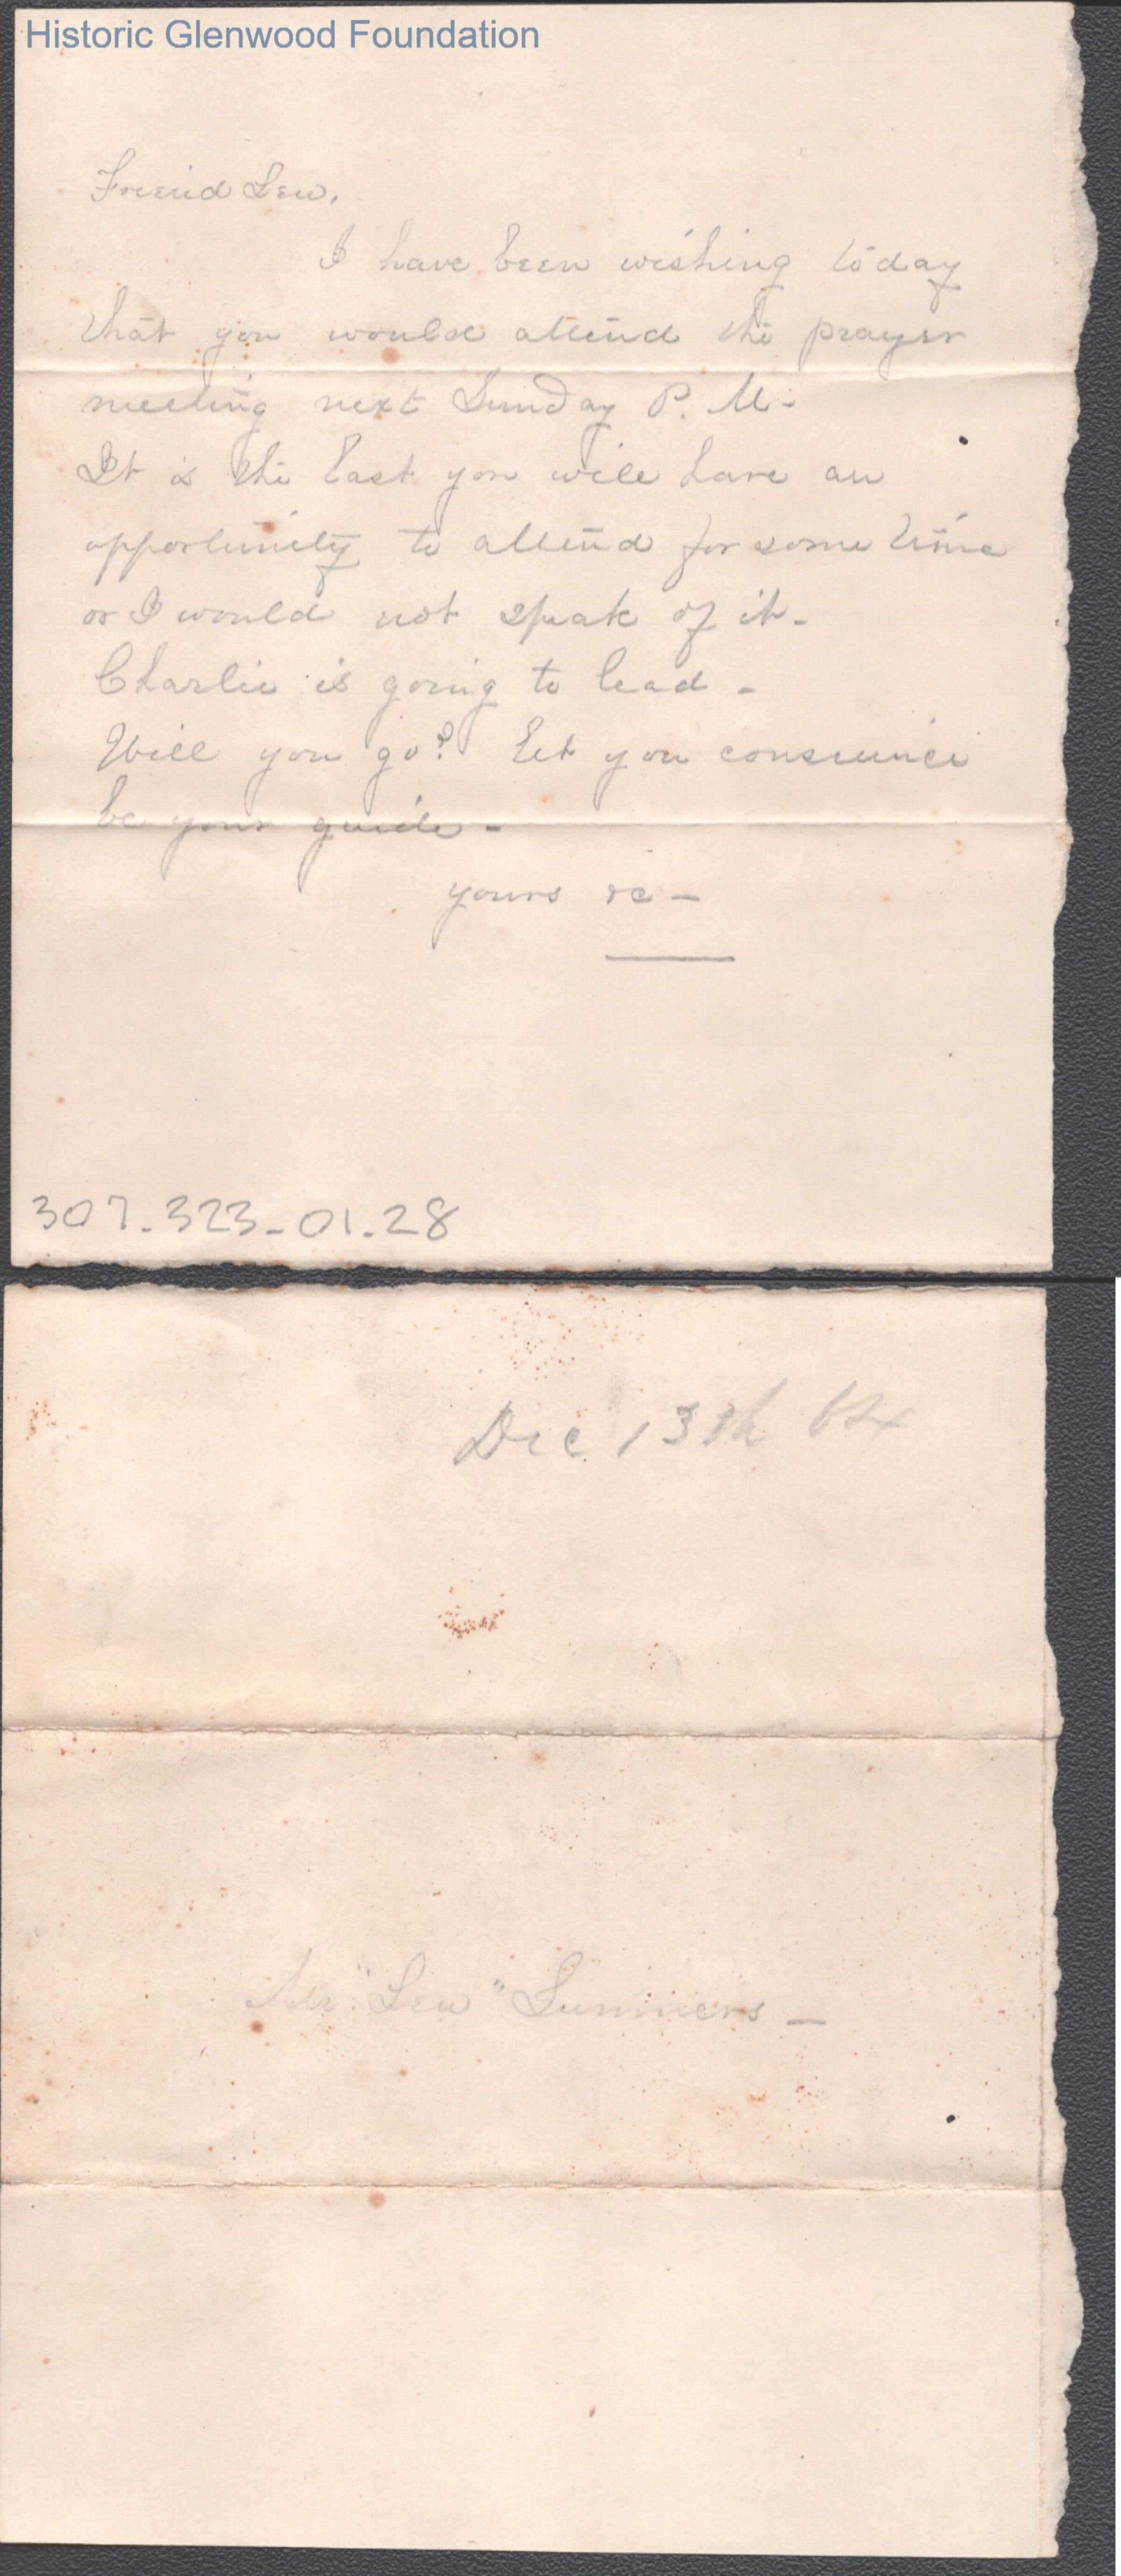 Historic Glenwood Foundation
Friend Lew,
I have been wishing today
that you would attend the prayer
meeting next Sunday P. M-
It is the last you will have an
opportunity to attend for some time
or I would not speak of it-
Charlie is going to lead-
Will you go? Let you conscience
be your guide-
yours &c-
307-323-01.28
Dec 13th
Mr. "Lew" Summers-